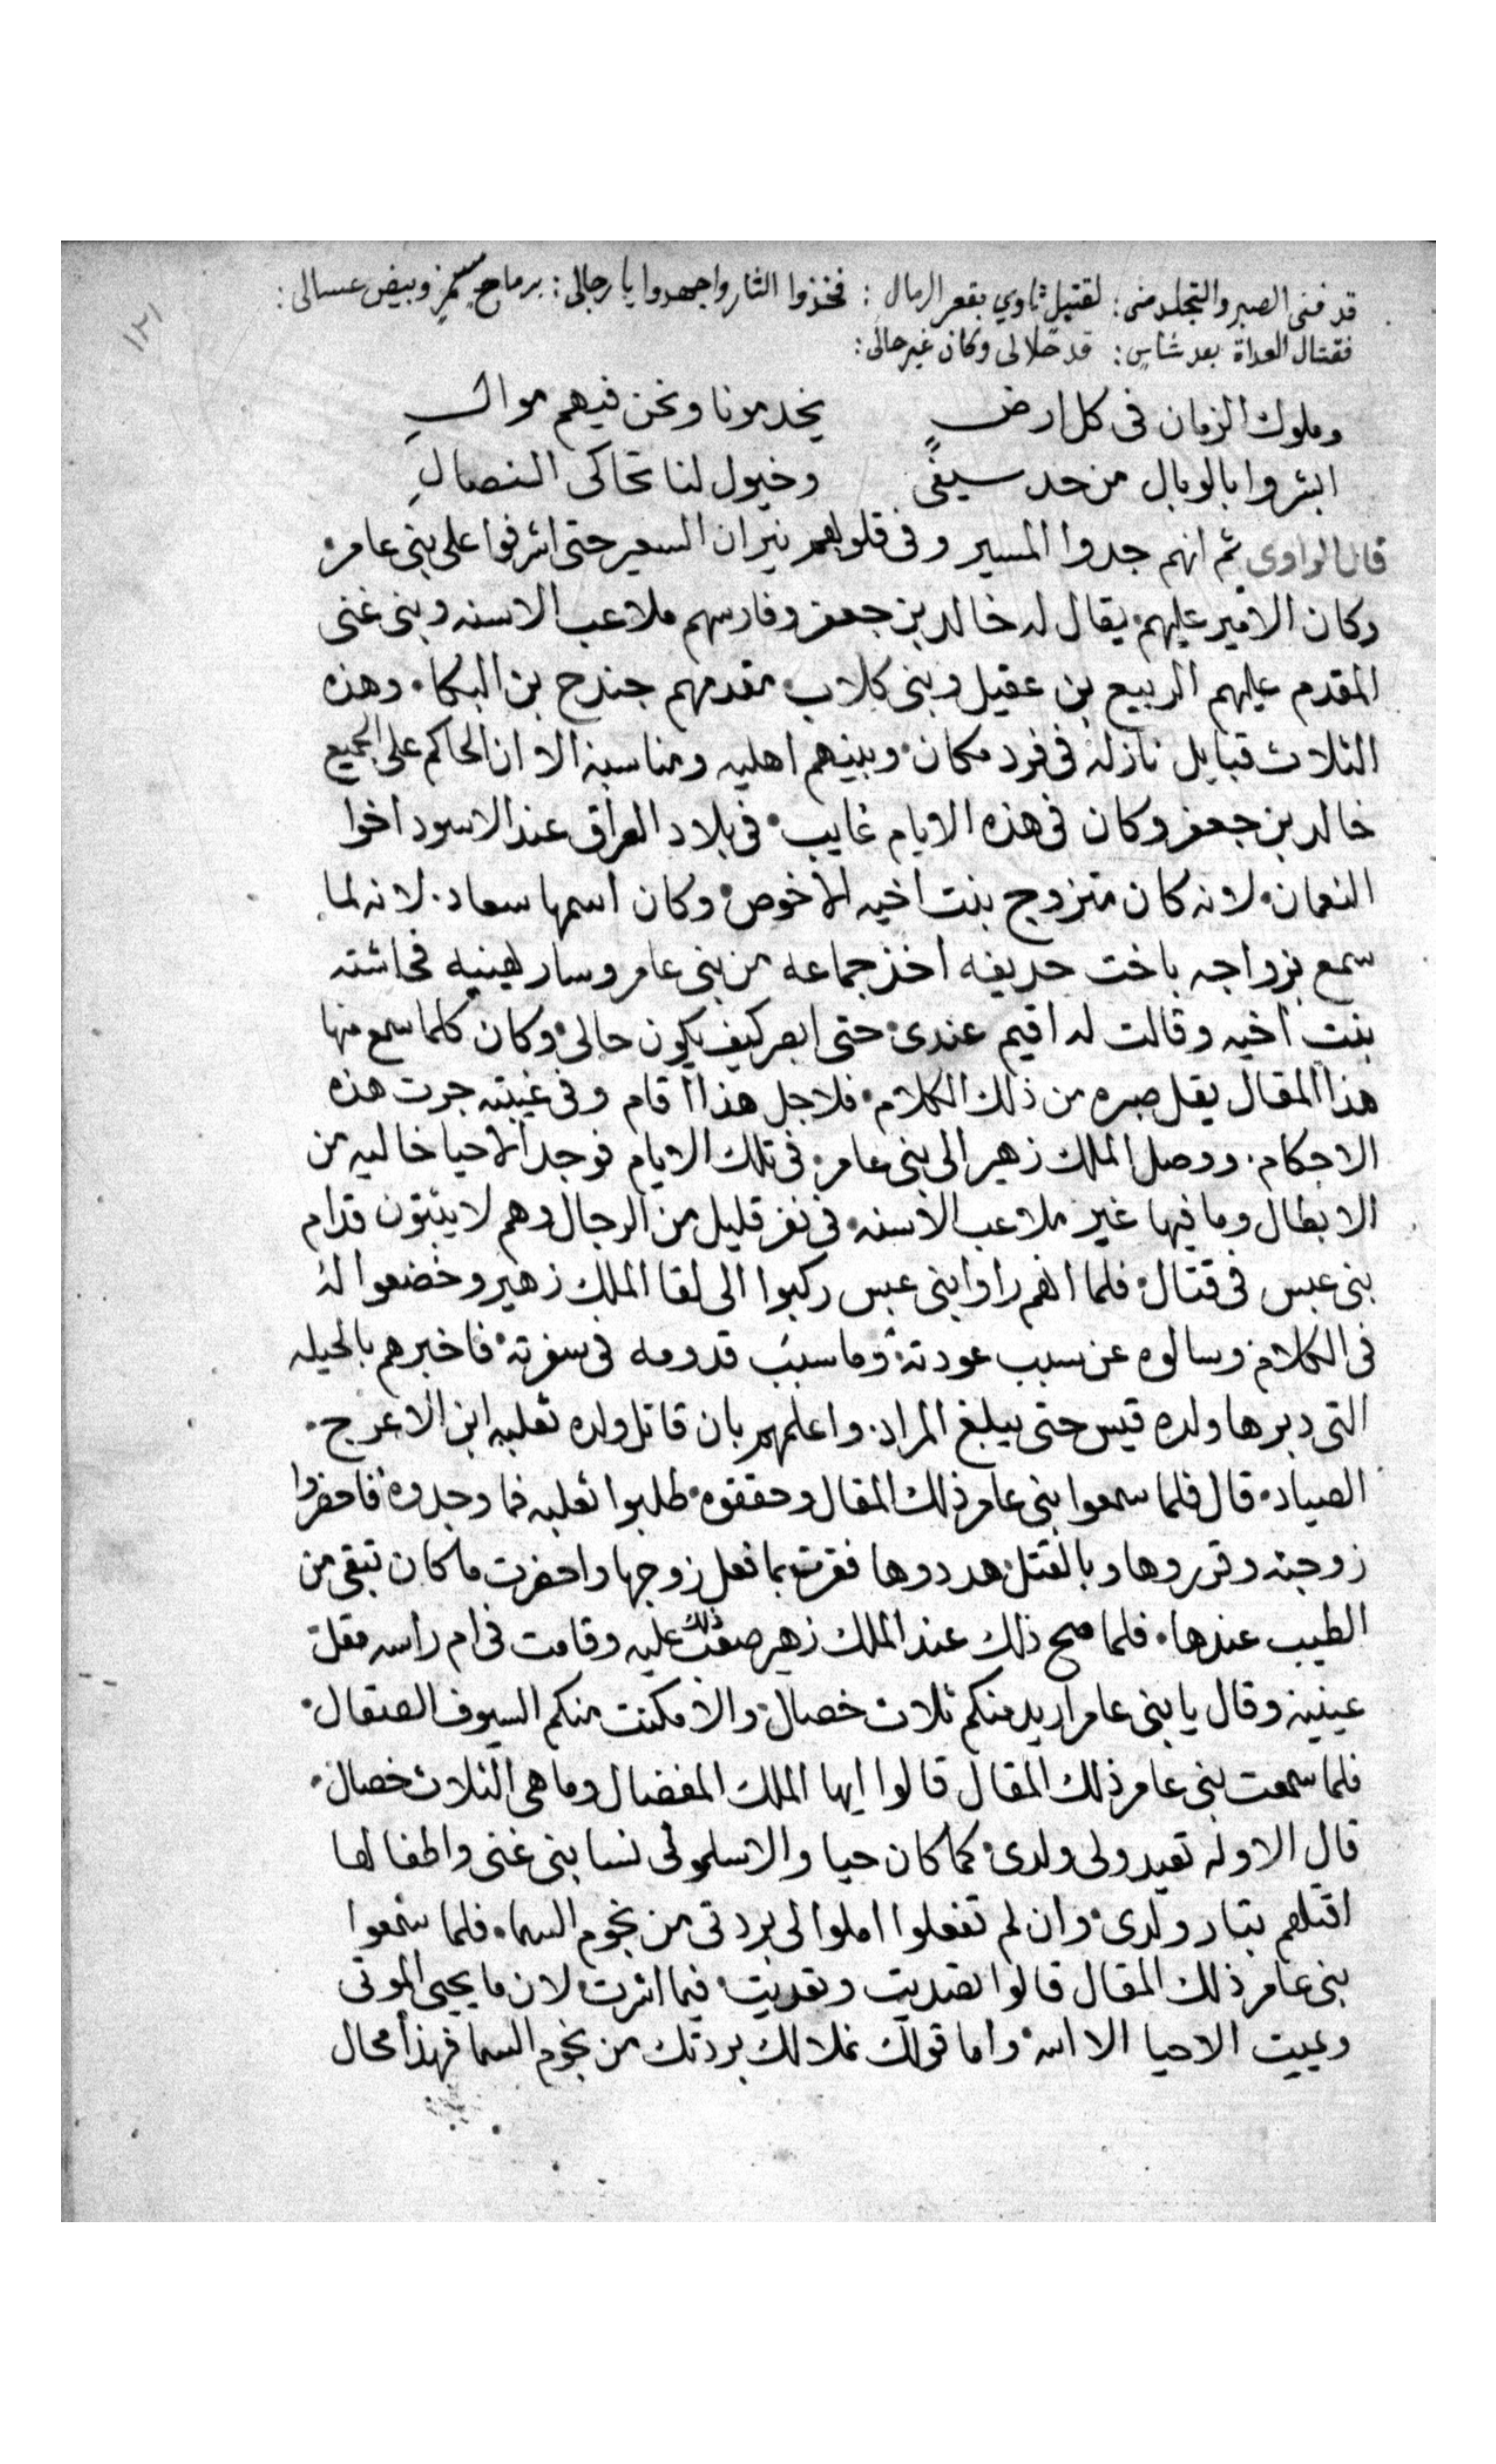 ١٢١
قد فنى الصبر والتجلد منى : لقتيل ثاوي بقعر الرمال : فخذوا الثار واجهدوا يا رجالى : برماح سمر وبيض عسالى :
فقتال العداة بعد شاس : قد حلالى وكان غير حالى :
وملوك الزمان فى كل ارضٍ يخدمونا ونحن فيهم موالِ
ابشروا بالوبال من حد سيفى وخيول لنا تحاكى النصالِ
قال الراوى ثم انهم جدوا المسير وفى قلوبهم نيران السعير حتى اشرفوا على بنى عامر
وكان الامير عليهم يقال له خالد بن جعفر وفارسهم ملاعب الاسنه وبنى غنى
المقدم عليهم الربيع بن عقيل وبنى كلاب مقدمهم جندح بن البكا وهذه
الثلاث قبايل نازله فى فرد مكان وبينهم اهليه ومناسبة الا ان الحاكم على الجميع
خالد بن جعفر وكان فى هذه الايام غايب فى بلاد العراق عند الاسود اخوا
النعمان لانه كان متزوج بنت اخيه الاخوص وكان اسمها سعاد لانه لما
سمع بزواجه باخت حديفه اخذ جماعه من بنى عامر وسار يهنيه فحاشته
بنت اخيه وقالت له اقيم عندى حتى ابصر كيف يكون حالى وكان كلما سمع منها
هذا المقال يقل صبره من ذلك الكلام فلاجل هذا اقام وفى غيبته جرت هذه
الاحكام ووصل الملك زهير الى بنى عامر فى تلك الايام فوجد الاحيا خاليه من
الابطال وما فيها غير ملاعب الاسنه فى نفر قليل من الرجال وهم لا يثبتون قدام
بنى عبس فى قتال فلما انهم راوا بنى عبس ركبوا الى لقا الملك زهير وخضعوا له
فى الكلام وسالوه عن سبب عودته وما سبب قدومه فى سفرته فاخبرهم بالحيله
التى دبرها ولده قيس حتى يبلغ المراد واعلمهم بان قاتل ولده ثعلبه ابن الاعرج
الصياد قال فلما سمعوا بنى عامر ذلك المقال وحققوه طلبوا ثعلبه فما وجدوه فاحضروا
زوجته وقرروها وبالقتل هددوها فقرت بما فعل زوجها واحضرت ما كان تبقى من
الطيب عندها فلما صح ذلك عند الملك زهير صعب ذلك عليه وقامت فى ام راسه مقل
عينيه وقال يا بنى عامر اريد منكم ثلاث خصال والا مكنت منكم السيوف الصقال
فلما سمعت بنى عامر ذلك المقال قالوا ايها الملك المفضال وما هى الثلاث خصال
قال الاوله تعيدولى ولدى كما كان حيا والا سلمولى نسا بنى غنى واطفالها
اقتلهم بتار ولدى وان لم تفعلوا املوا لى بردتى من نجوم السما فلما سمعوا
بنى عامر ذلك المقال قالوا تعديت فيما اشرت لان ما يحيى الموتى
ويميت الاحيا الا الله واما قولك نملا لك بردتك من نجوم السما فهذا محال